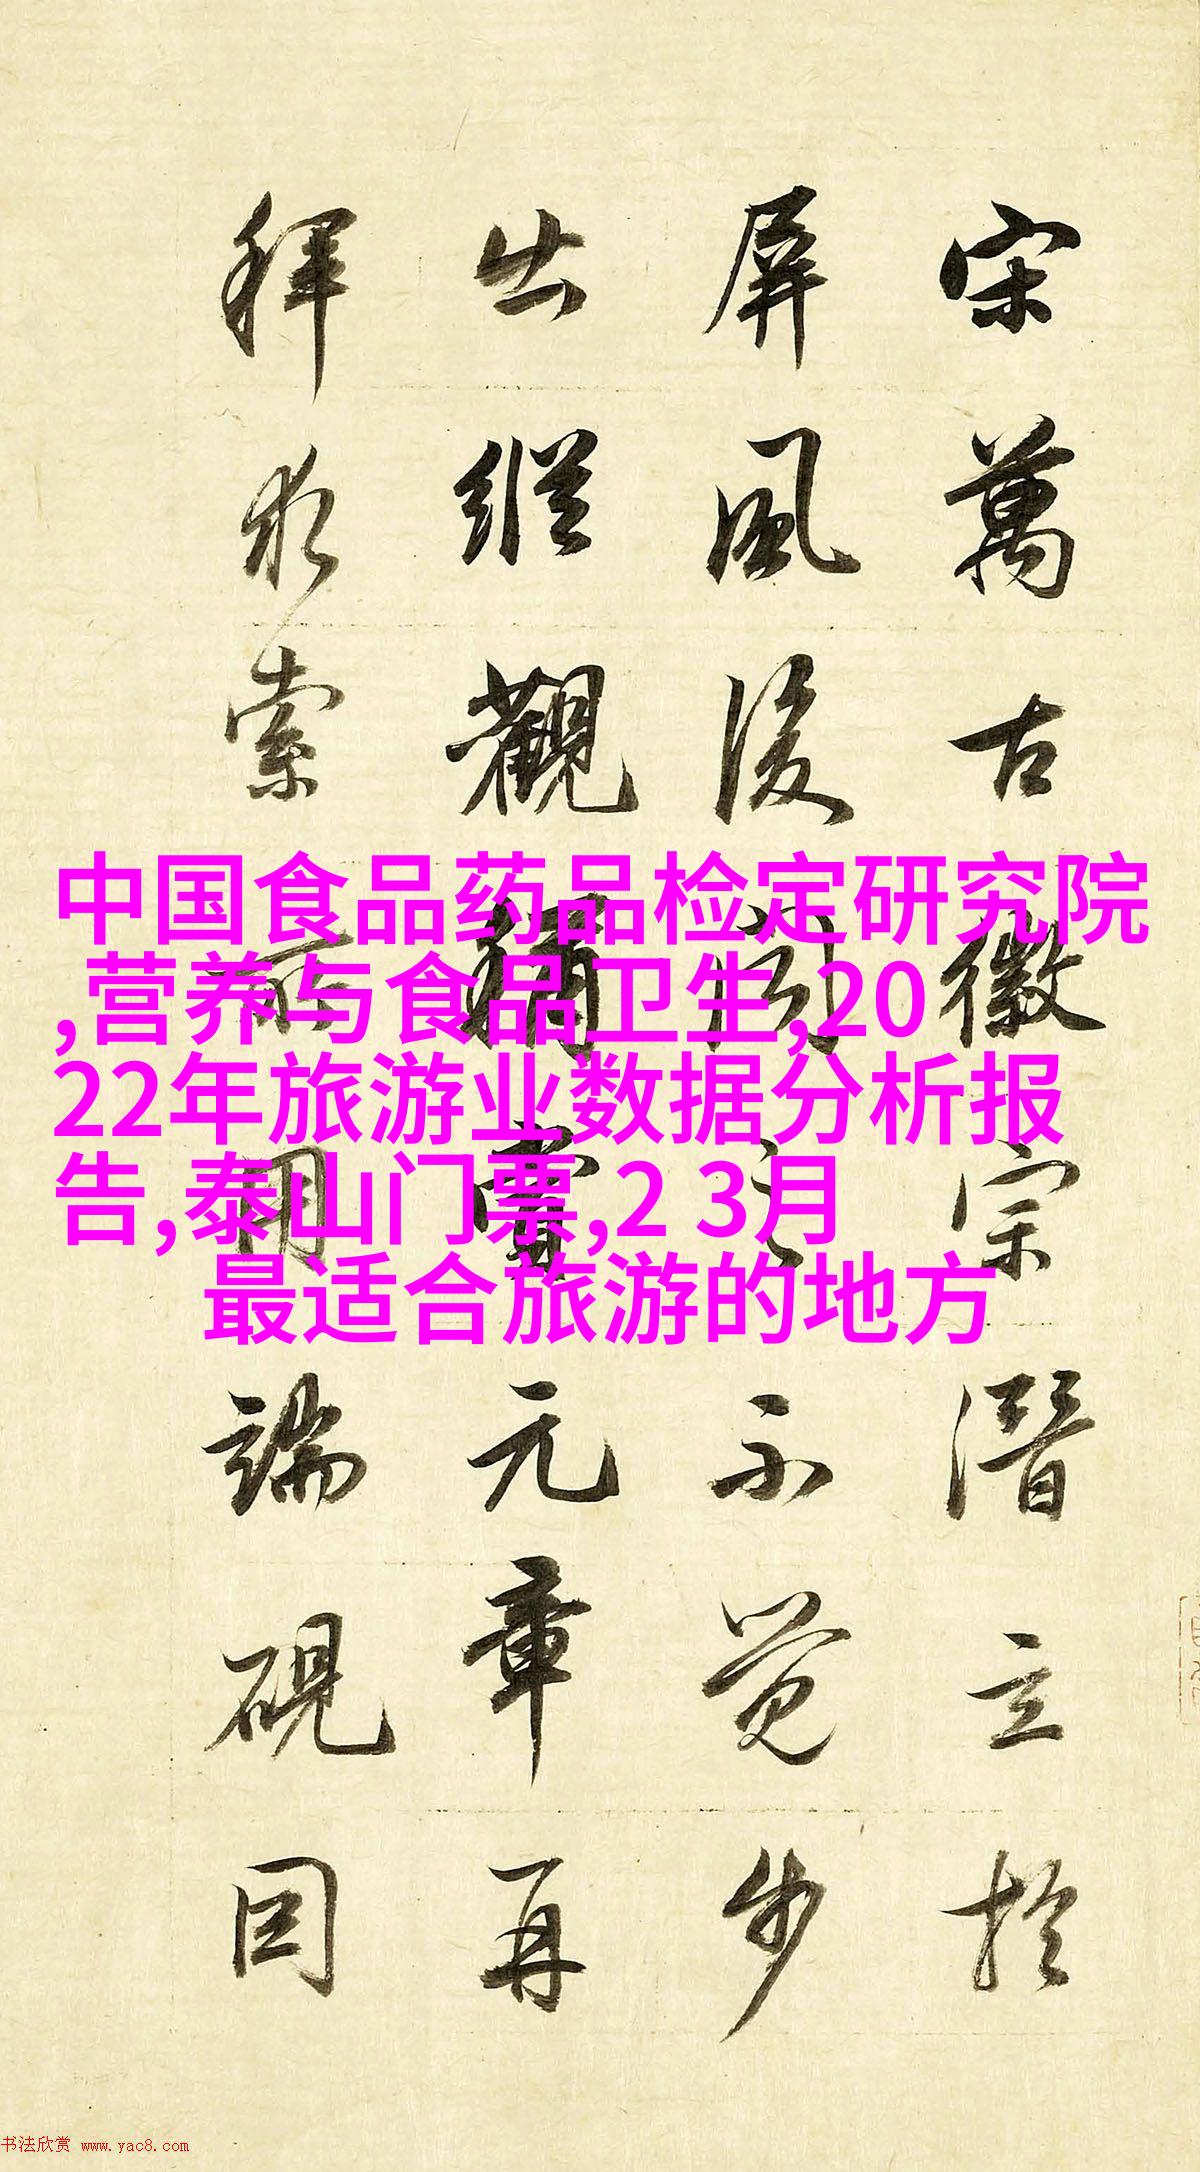 宋萬古徽宗潛立於
屏風後聞之不覺步
出縱觀稱賞元章再
拜求索所用端硯因
中国食品药品检定研究院
,营养与食品卫生,20
22年旅游业数据分析报
告,泰山门票,2 3月
最适合旅游的地方
书法欣赏 www.yac8.com